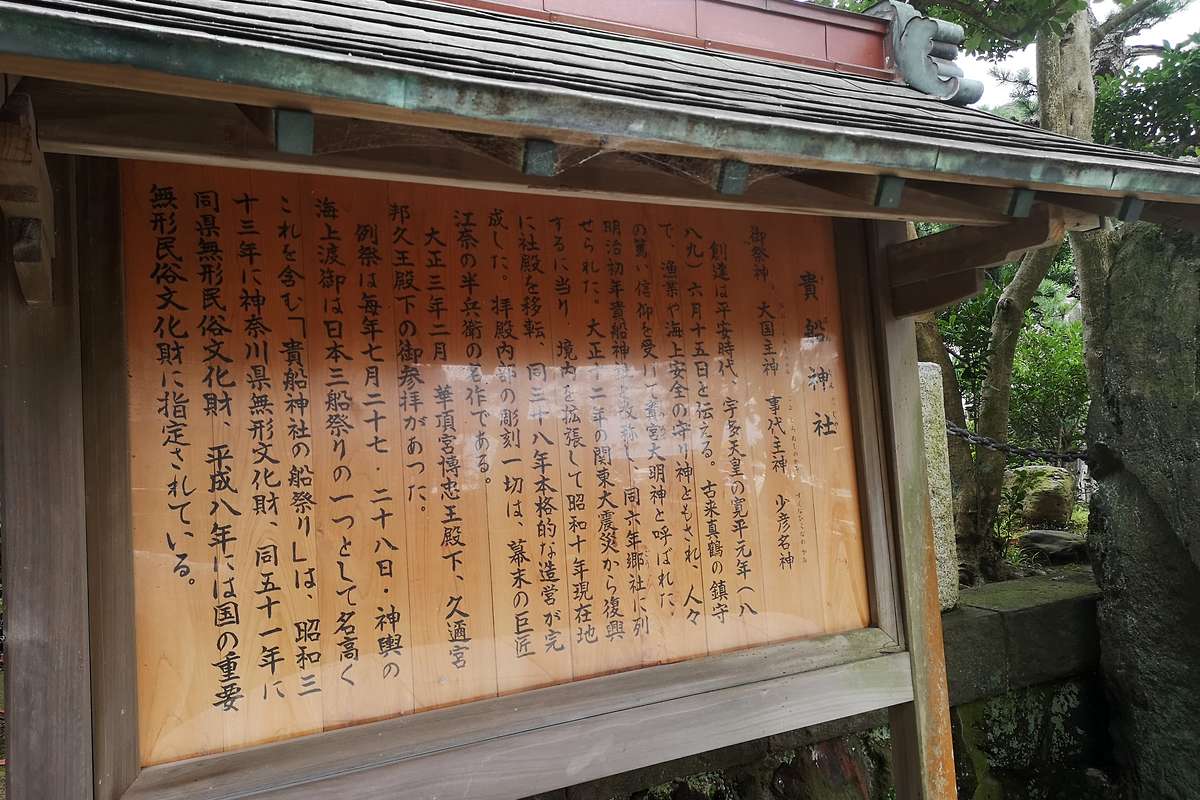 貴船神社
御祭神、大国主神 事代主神 少彦名神
創建は平安時代、宇多天皇の寛平元年(八
八九)六月十五日と伝える。古来真鶴の鎮守
で、漁業や海上安全の守り神ともされ、人々
の篤い信仰を受けて貴宮大明神と呼ばれた。
明治初年貴船神社と改称し、同六年郷社に列
せられた。大正十二年の関東大震災から復興
するに当り、境内を拡張して昭和十年現在地
に社殿を移転、同三十八年本格的な造営が完
成した。拝殿内部の彫刻一切は、幕末の巨匠
江奈の半兵衛の名作である。
大正三年二月 華頂宮博忠王殿下、久邇宮
邦久王殿下の御参拝があった。
例祭は毎年七月二十七・二十八日・神輿の
海上渡御は日本三船祭りの一つとして名高く
これを含む「貴船神社の船祭り」は、昭和三
十三年に神奈川県無形文化財、同五十一年に
同県無形民俗文化財、平成八年には国の重要
無形民俗文化財に指定されている。